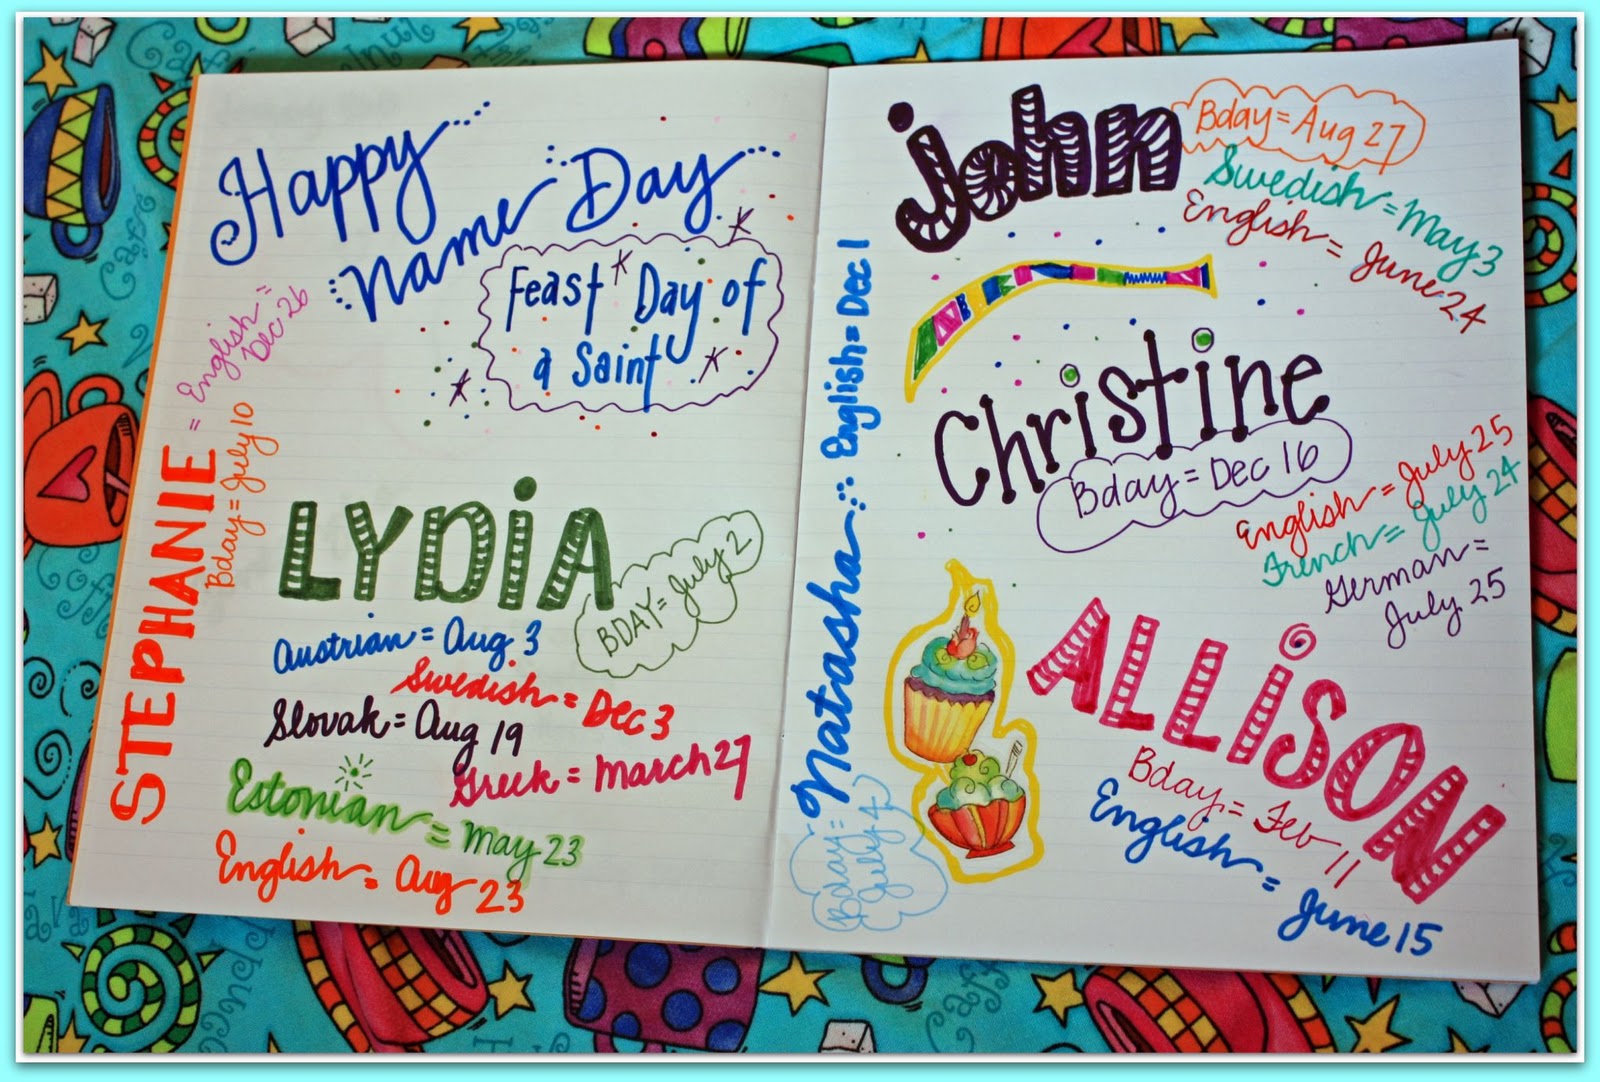 Happy
Name Day
Feast Day of
a Saint
STEPHANIE = English =
Dec 26
Bday = July 10
LYDIA
BDAY = July 2
Austrian = Aug 3
Swedish = Dec 3
Slovak = Aug 19
Greek = March 27
Estonian = May 23
English = Aug 23
Natasha English = Dec 1
Bday =
July 4
john
Bday = Aug 27
Swedish = May 3
English = June 24
Christine
Bday = Dec 16
English = July 25
French = July 24
German =
July 25
ALLiSON
Bday = Feb 11
English = June 15